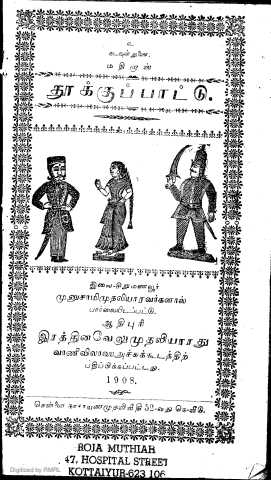 உ
கடவுள் துணை.
மதிமூஸ்
தூக்குப்பாட்டு.
இவை-திருமணவூர்
முனுசாமிமுதலியாரவர்களால்
பார்வையிடப்பட்டு.
ஆதிபுரி
இரத்தினவேலுமுதலியாரது
வாணீவிலாஸஅச்சுக்கூடத்திற்
பதிப்பிக்கப்பட்டது.
1908.
சென்னை நாராயணமுதலிவீதி 52-வது கெ-வீடு.
ROJA MUTHIAH
47, HOSPITAL STREET
KOTTAIYUR-623 106
Digitized by RMRL